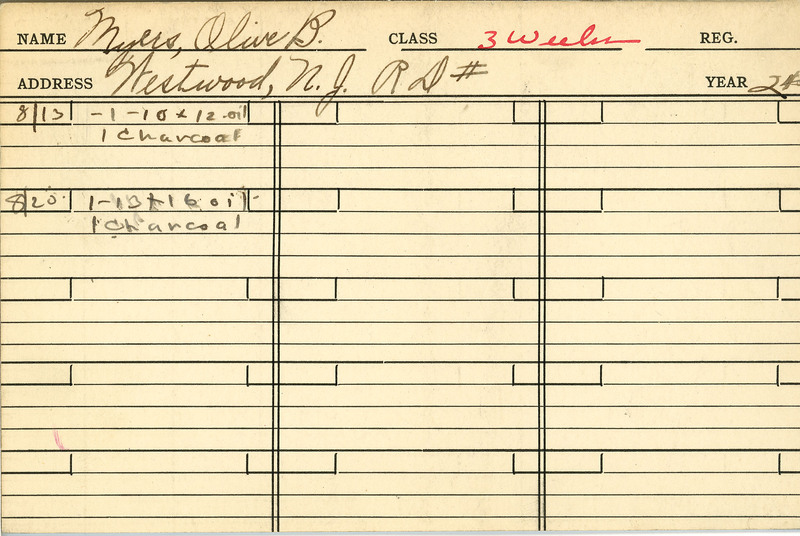 NAME Myers, Olive B. CLASS 3 Weeks REG.
ADDRESS Westwood, N. J. R D # YEAR
8/13 - 1 - 10 x 12 oil
1 Charcoal
8/20 1 - 13 x 16 oil -
1 Charcoal